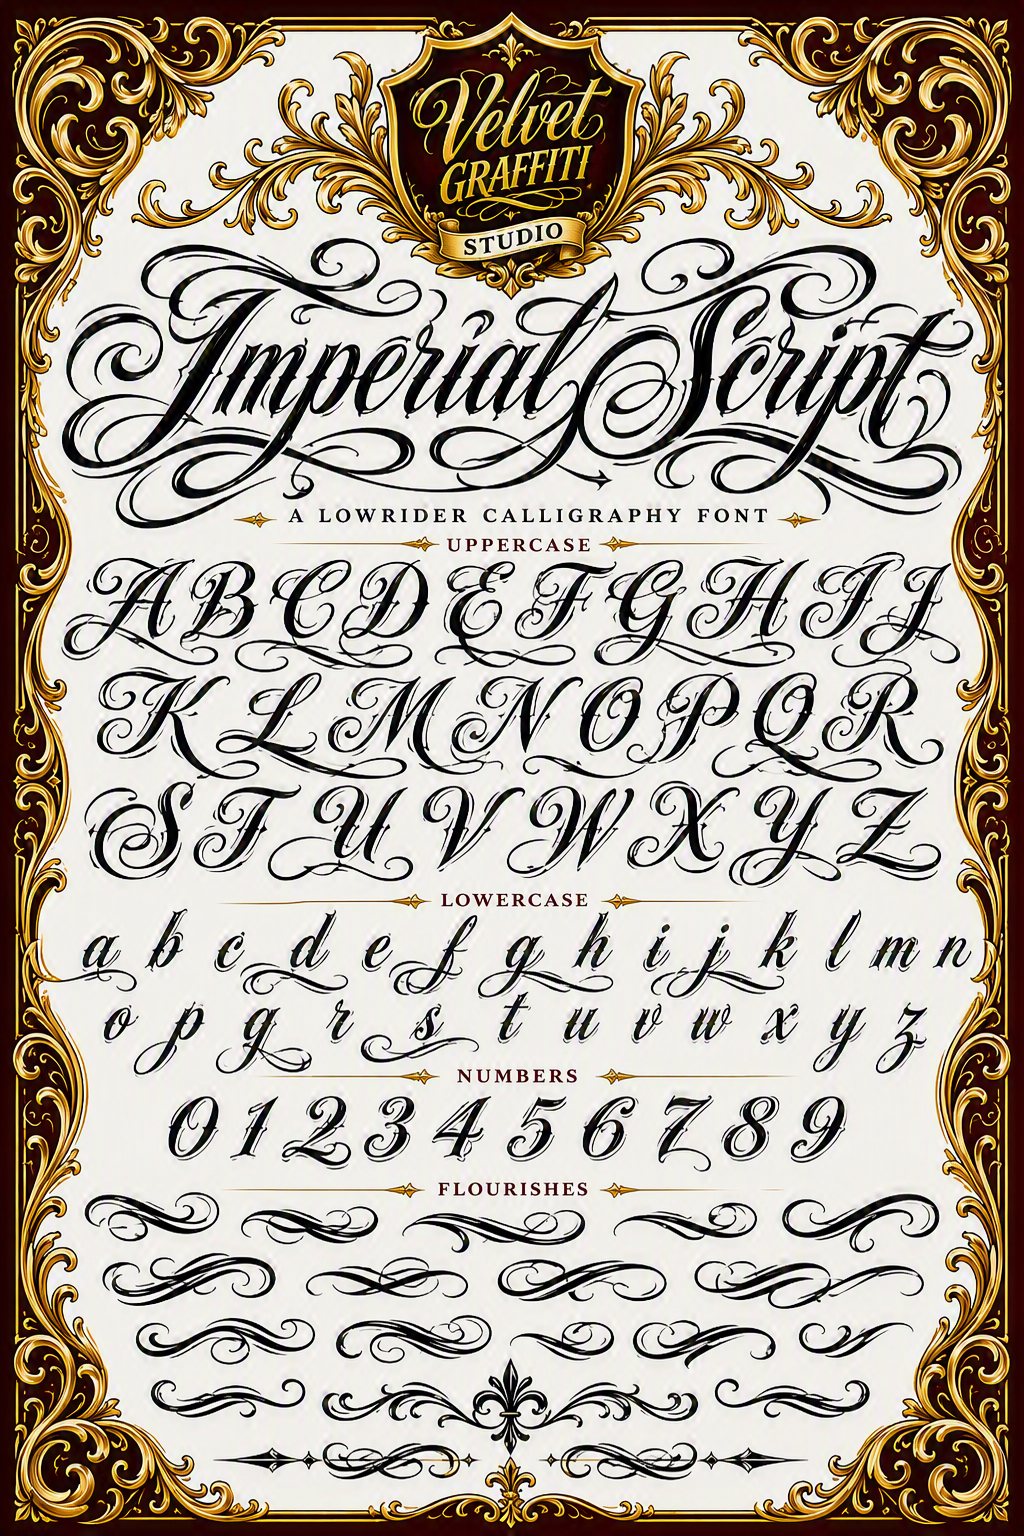 Velvet
GRAFFITI
STUDIO
Imperial Script
A LOWRIDER CALLIGRAPHY FONT
UPPERCASE
A B C D E F G H I J
K L M N O P Q R
S T U V W X Y Z
LOWERCASE
a b c d e f g h i j k l m n
o p q r s t u v w x y z
NUMBERS
0 1 2 3 4 5 6 7 8 9
FLOURISHES